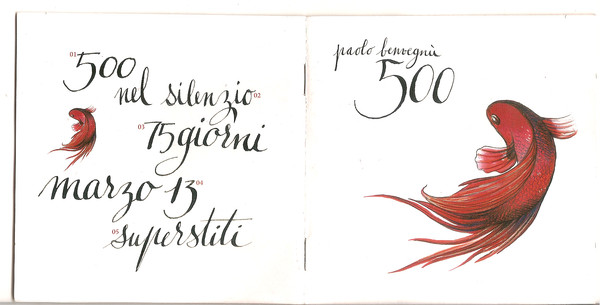 01 500
nel silenzio 02
03 75 giorni
marzo 13 04
05 superstiti
paolo benvegnù
500